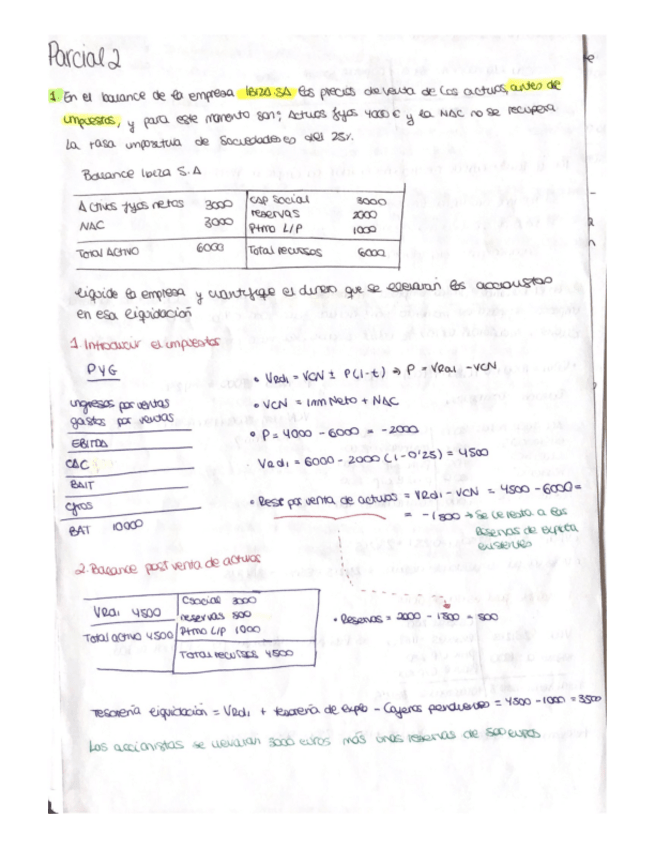 Parcial 2
1. En el balance de la empresa IBIZA SA los precios de venta de los activos, antes de
impuestos, y para este momento son: Activos fijos 4000€ y la NAC no se recupera
La tasa impositiva de Sociedades es del 25%.
Balance Ibiza S.A
Activos fijos netos 3000 cap social 3000
NAC 3000 reservas 2000
Ptmo L/P 1000
Total Activo 6000 Total recursos 6000
Liquide la empresa y cuantifique el dinero que se llevaran los accionistas
en esa liquidación
1. Introducir el impuestos
PYG
ingresos por ventas
gastos por ventas
EBITDA
CAC
BAIT
gfros
BAT 10000
• VRdi = VCN ± P(1-t) → P = VRai - VCN
• VCN = Inm Neto + NAC
• P = 4000 - 6000 = -2000
VRdi = 6000 - 2000 (1-0'25) = 4500
• Rest por venta de activos = VRdi - VCN = 4500 - 6000 =
= -1500 → Se le resta a las
Reservas de
2. Balance post venta de activos
VRdi 4500 Csocial 3000
reservas 500
Total activo 4500 Ptmo L/P 1000
Total recursos 4500
• Reservas = 2000 - 1500 = 500
Tesorería liquidación = VRdi + tesorería de - = 4500 - 1000 = 3500
Los accionistas se llevaran 3000 euros más unas reservas de 500 euros.